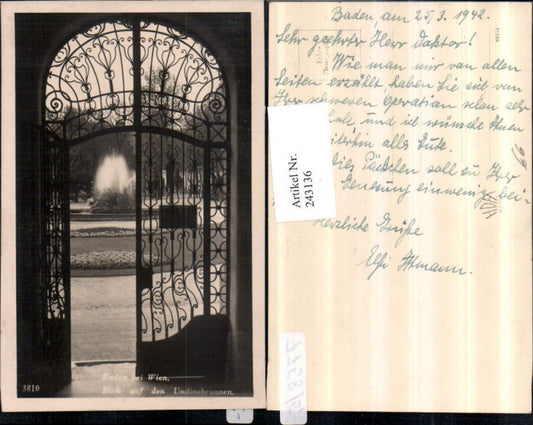 3810
Baden bei Wien.
Blick auf den Undinebrunnen.
Baden, am 25,3.1942.
Sehr geehrter Herr Doktor!
Wie man mir von allen
Seiten erzählt, haben Sie sich von
Ihrer schweren Operation schon sehr
und ich wünsche Ihnen
weiterhin alles Gute.
dies Päckchen soll zu Ihrer
Genesung ein wenig bei-
Herzliche Grüße
Elfi
Artikel Nr.
243136